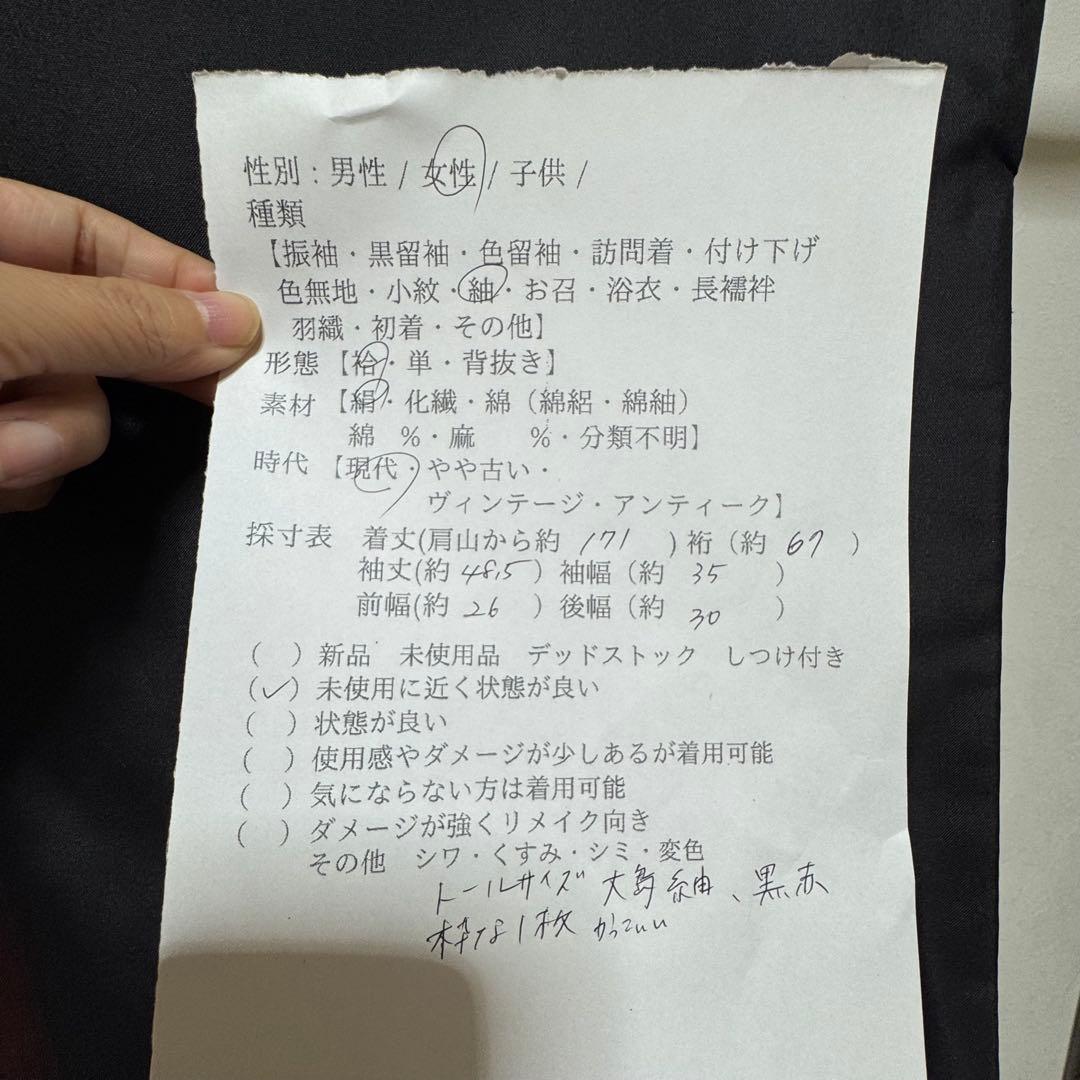 性別：男性 / 女性 / 子供 /
種類
【振袖・黒留袖・色留袖・訪問着・付け下げ
色無地・小紋・紬・お召・浴衣・長襦袢
羽織・初着・その他】
形態【袷・単・背抜き】
素材【絹・化繊・綿（綿絽・綿紬）
綿 %・麻 %・分類不明】
時代【現代・やや古い・
ヴィンテージ・アンティーク】
採寸表 着丈(肩山から約 171 ) 裄（約 67 ）
袖丈(約 48.5 ）袖幅（約 35 ）
前幅(約 26 ）後幅（約 30 ）
（ ）新品 未使用品 デッドストック しつけ付き
（✓）未使用に近く状態が良い
（ ）状態が良い
（ ）使用感やダメージが少しあるが着用可能
（ ）気にならない方は着用可能
（ ）ダメージが強くリメイク向き
その他 シワ・くすみ・シミ・変色
トールサイズ 大島紬、黒赤
粋な1枚 かっこいい